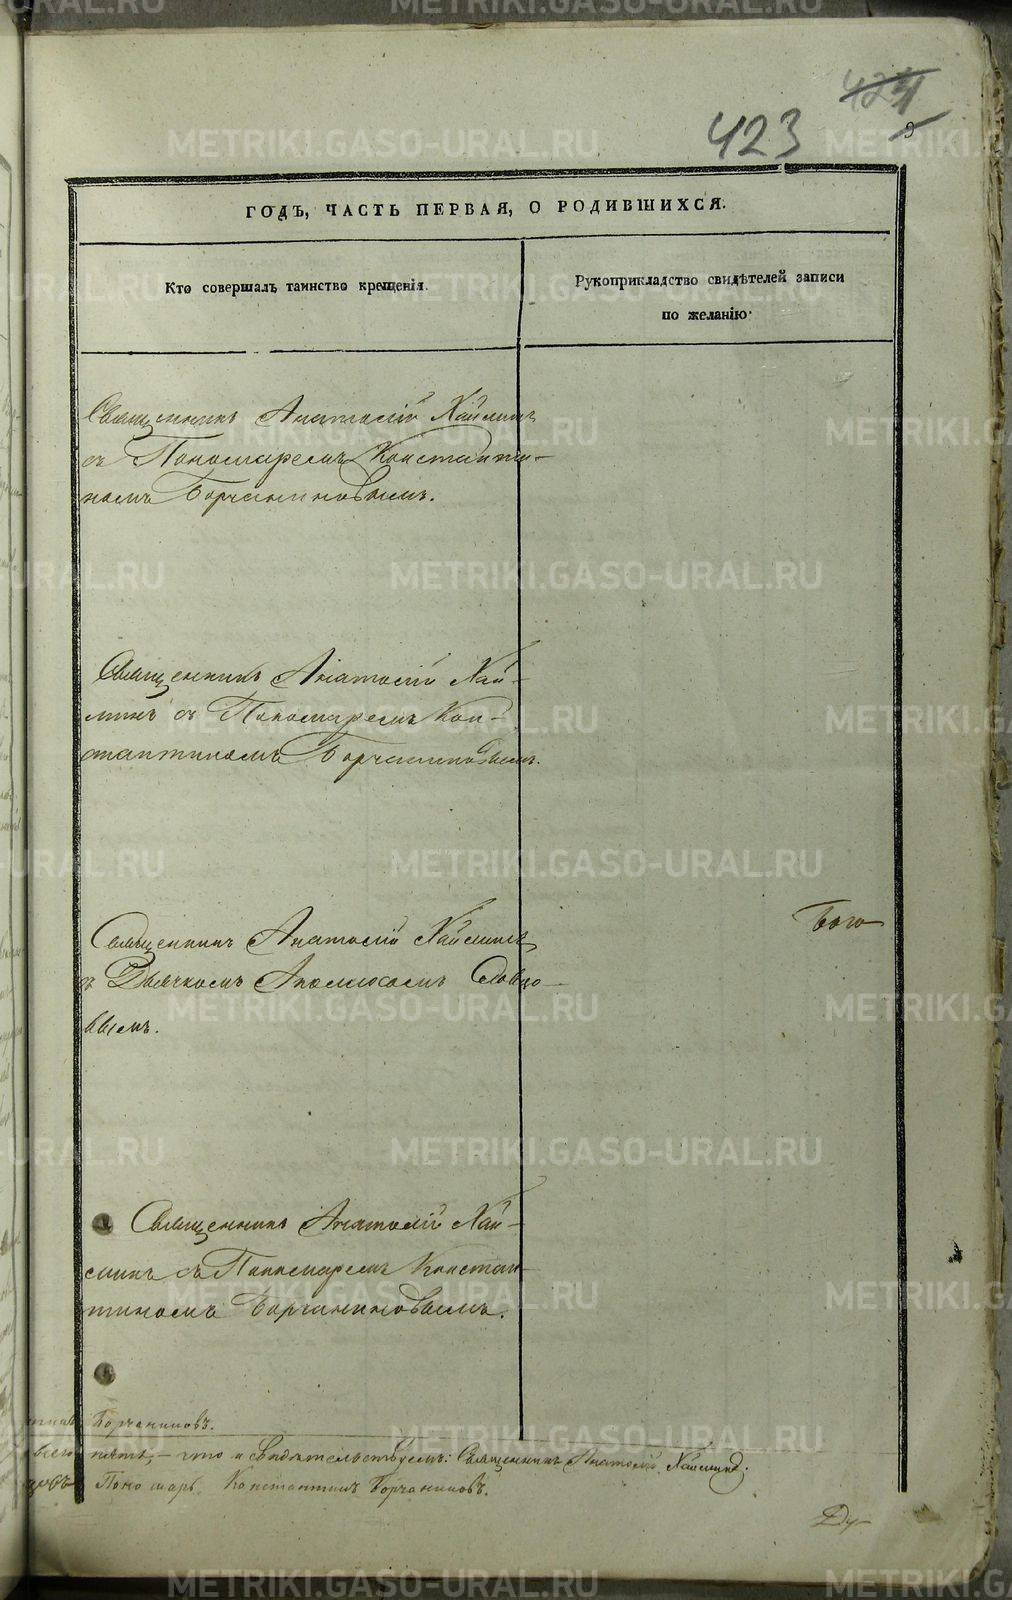 423
9
ГОДЪ, ЧАСТЬ ПЕРВАЯ, О РОДИВШИХСЯ.
Кто совершалъ таинство крещенія.
Рукоприкладство свидѣтелей записи
по желанію.
Священникъ Анатолій Хайминъ
съ Пономаремъ Константи-
номъ Борчаниновымъ.
Священникъ Анатолій Хай-
минъ съ Пономаремъ Кон-
стантиномъ Борчаниновымъ.
Священникъ Анатолій Хайминъ
съ Дьячкомъ Словцо-
вымъ.
Бого
Священникъ Анатолій Хай-
минъ съ Пономаремъ Констан-
тиномъ Борчаниновымъ.
Борчаниновъ.
что и свидѣтельствуемъ: Священникъ Анатолій Хайминъ.
Пономарь Константинъ Борчаниновъ.
Ду-
METRIKI.GASO-URAL.RU